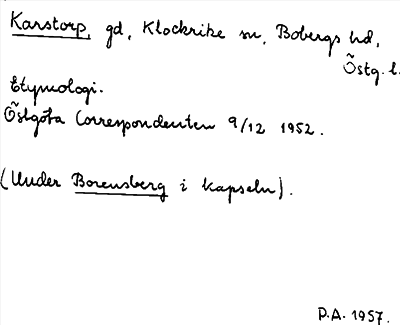 Karstorp, gd, Klockrike sn, Bobergs hd,
Östg. l.
Etymologi.
Östgöta Correspondenten 9/12 1952.
(Under Borensberg i kapseln).
P.A. 1957.